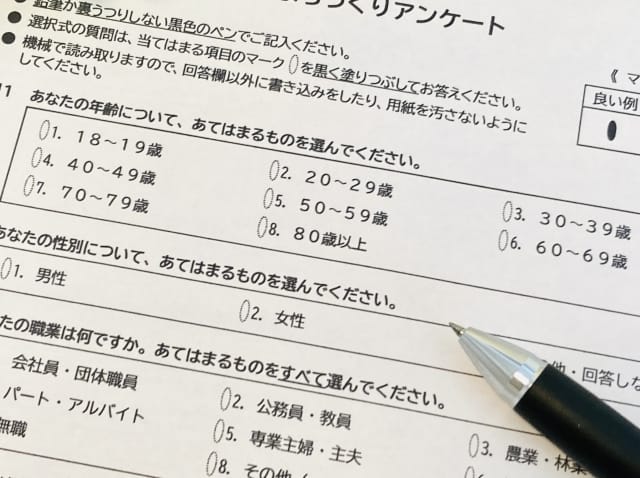 づくりアンケート
鉛筆か裏うつりしない黒色のペンでご記入ください。
● 選択式の質問は、当てはまる項目のマーク を黒く塗りつぶしてお答えください。
● 機械で読み取りますので、回答欄以外に書き込みをしたり、用紙を汚さないように
してください。
《 マ
良い例
1 あなたの年齢について、あてはまるものを選んでください。
1. 18～19歳 2. 20～29歳 3. 30～39歳
4. 40～49歳 5. 50～59歳 6. 60～69歳
7. 70～79歳 8. 80歳以上
あなたの性別について、あてはまるものを選んでください。
1. 男性 2. 女性 他・回答しな
たの職業は何ですか。あてはまるものをすべて選んでください。
会社員・団体職員 2. 公務員・教員 3. 農業・林業
パート・アルバイト 5. 専業主婦・主夫
無職 8. その他